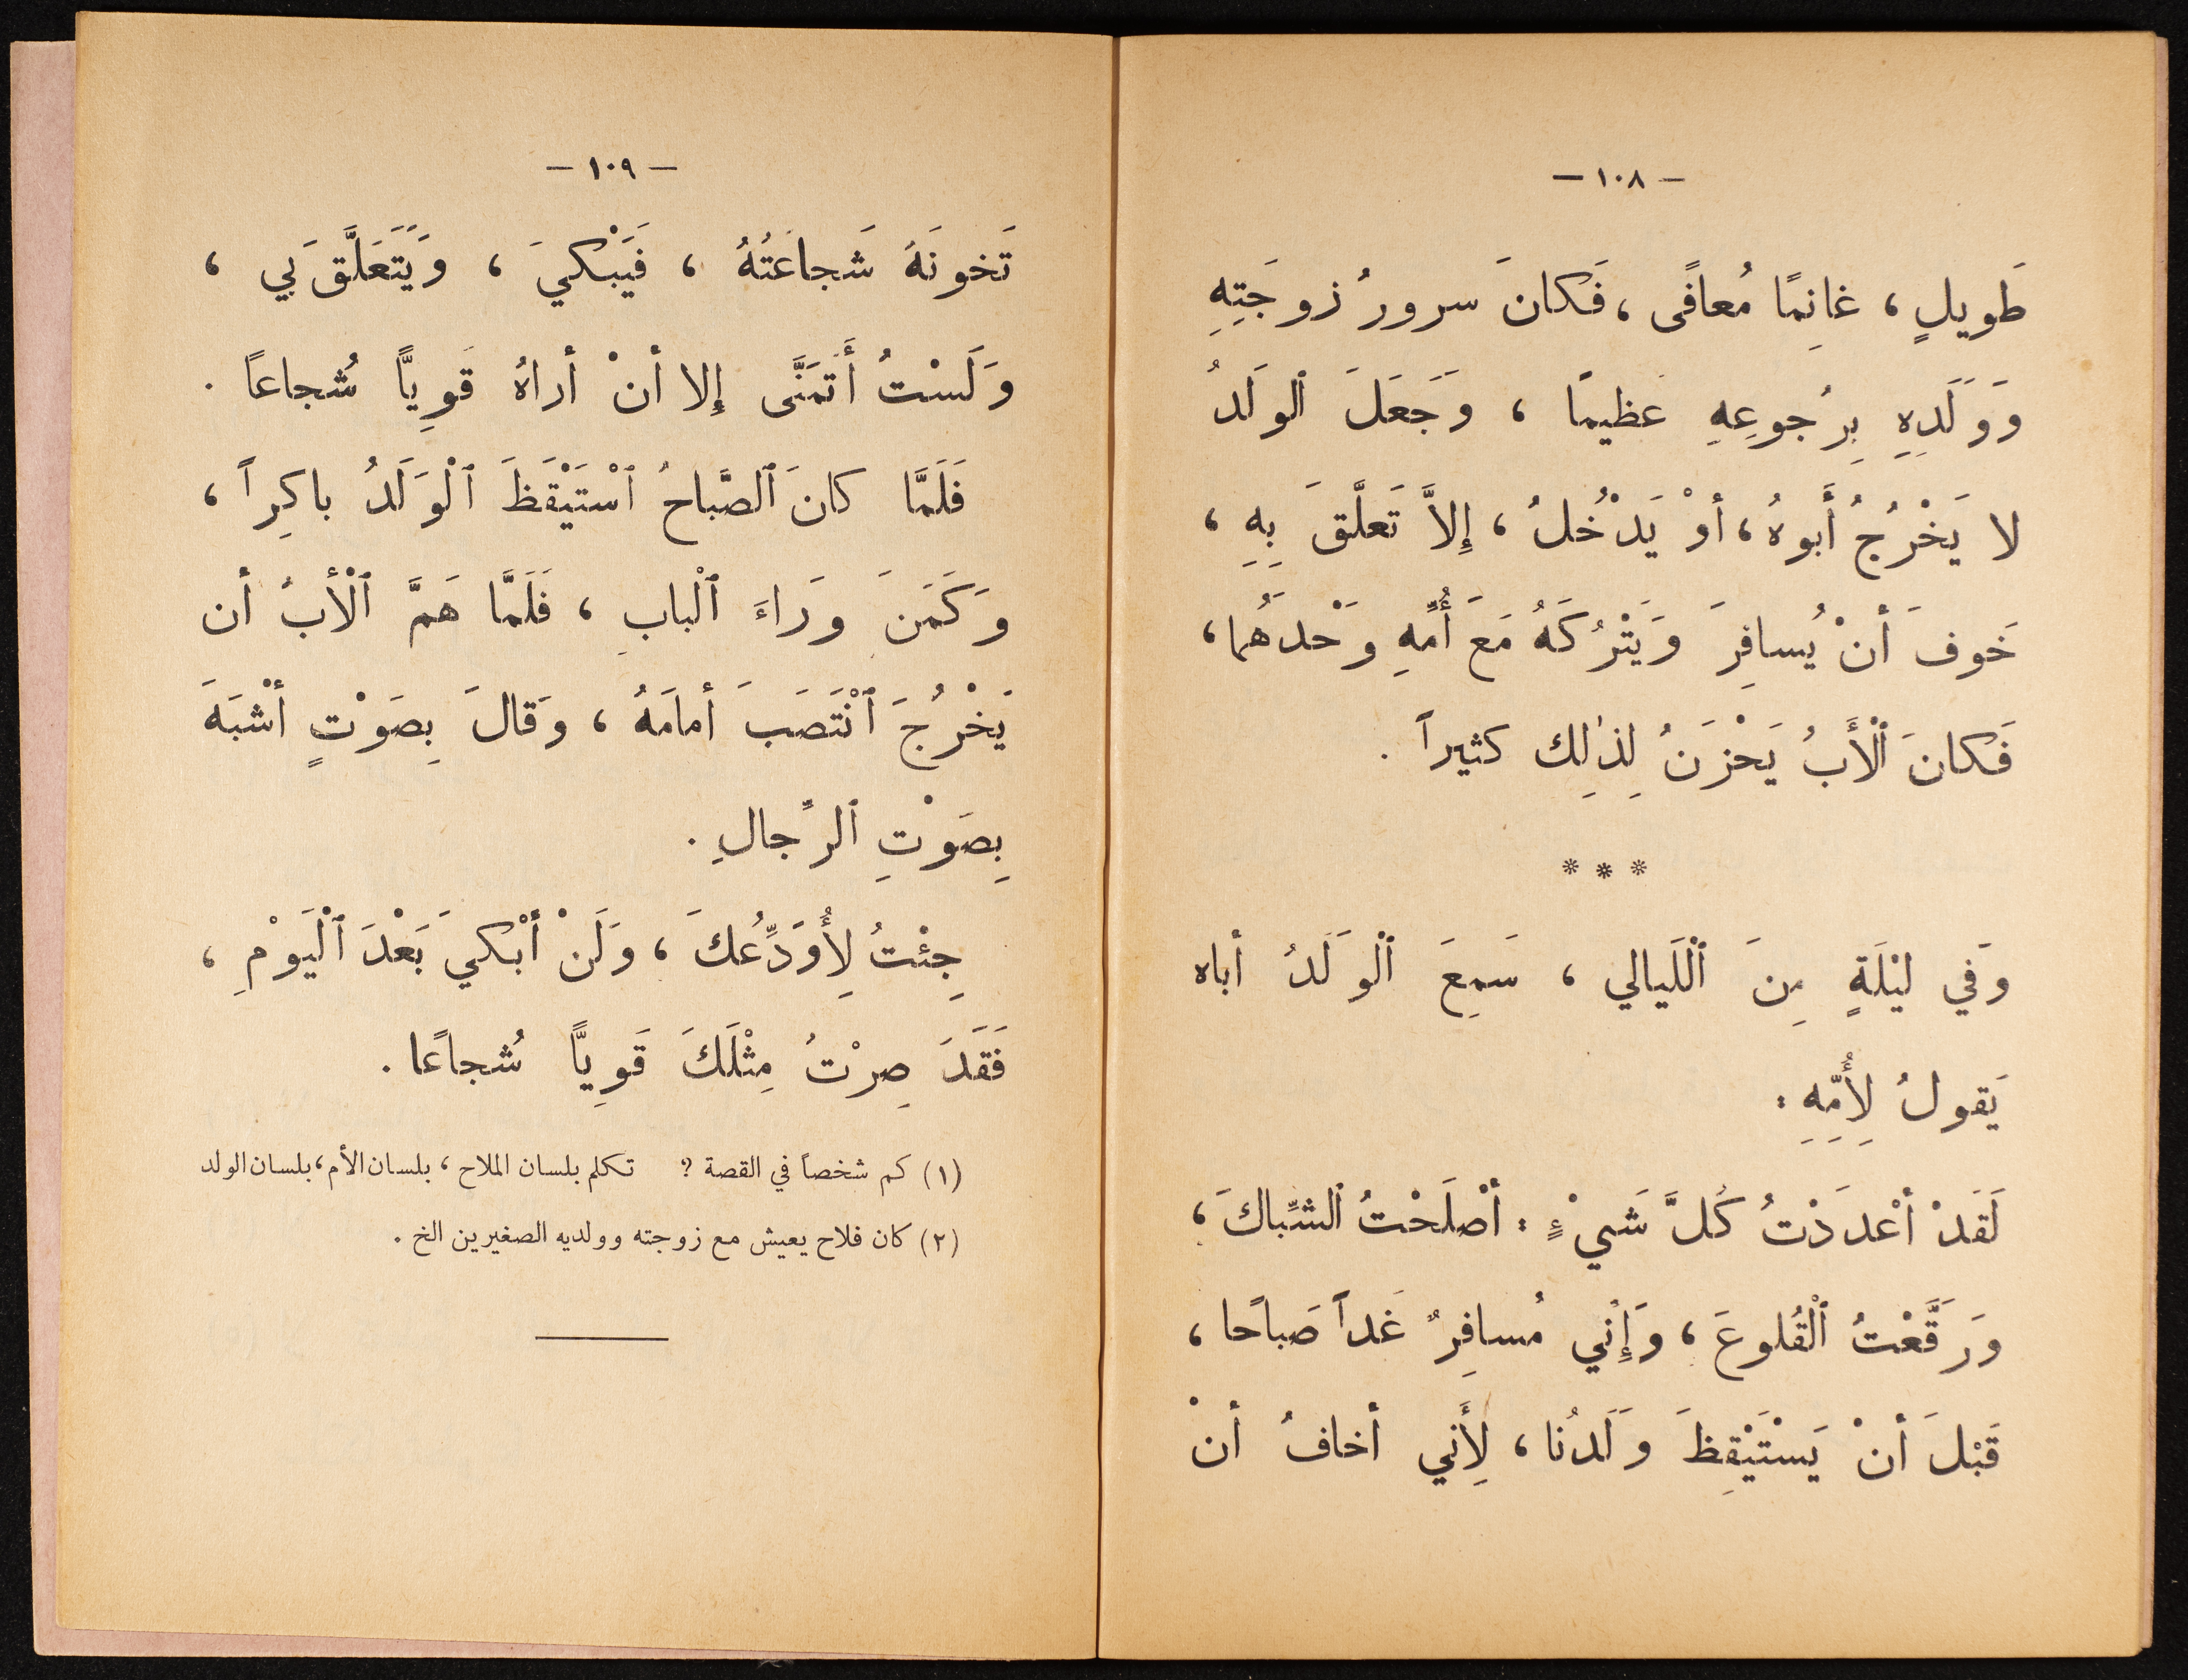 — ١٠٨ —
طَويلٍ ، غانِمًا مُعافًى ، فَكانَ سرورُ زوجَتِهِ
وَوَلَدِهِ بِرُجوعِهِ عَظيمًا ، وَجَعَلَ ٱلوَلَدُ
لا يَخْرُجُ أَبوهُ ، أوْ يَدْخُلُ ، إِلاَّ تَعلَّقَ بِهِ ،
خَوفَ أنْ يُسافِرَ وَيَتْرُكَهُ مَعَ أُمِّهِ وَحْدَهُما ،
فَكانَ ٱلْأَبُ يَحْزَنُ لِذٰلِك كثيراً .
* * *
وَفي ليْلَةٍ مِنَ ٱلْلَيالي ، سَمِعَ ٱلْوَلَدُ أباه
يَقولُ لِأُمِّهِ :
لَقَدْ أعْدَدْتُ كُلَّ شَيْءٍ : أصْلَحْتُ ٱلشِّباكَ ،
وَرَقَّعْتُ ٱلْقُلوعَ ، وَإِنْي مُسافِرٌ غَداً صَباحًا ،
قَبْلَ أنْ يَسْتَيْقِظَ وَلَدُنا ، لِأَني أخافُ أنْ
— ١٠٩ —
تَخونَهُ شَجاعَتُهُ ، فَيَبْكيَ ، وَيَتَعَلَّقَ بي ،
وَلَسْتُ أَتَمَنَّى إِلا أنْ أراهُ قَوِيًّا شُجاعاً .
فَلَمَّا كانَ ٱلصَّباحُ ٱسْتَيْقَظَ ٱلْوَلَدُ باكِراً ،
وَكَمَنَ وَراءَ ٱلْبابِ ، فَلَمَّا هَمَّ ٱلْأبُ أن
يَخْرُجَ ٱنْتَصَبَ أمامَهُ ، وَقالَ بِصَوْتٍ أشْبَهَ
بِصَوْتِ ٱلرِّجالِ .
جِئْتُ لِأُوَدِّعُكَ ، وَلَنْ أبْكيَ بَعْدَ ٱلْيَوْمِ ،
فَقَدَ صِرْتُ مِثْلَكَ قَوِيًّا شُجاعًا .
(١) كم شخصاً في القصة ؟ تكلم بلسان الملاح ، بلسان الأم ، بلسان الولد
(٢) كان فلاح يعيش مع زوجته وولديه الصغيرين الخ .